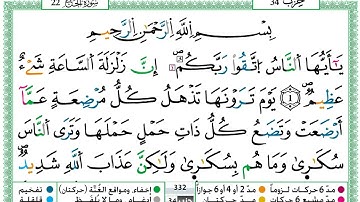 سُورَةُ الحَج 22
حِزب 34
بِسْمِ ٱللَّهِ ٱلرَّحْمَٰنِ ٱلرَّحِيمِ
يَٰٓأَيُّهَا ٱلنَّاسُ ٱتَّقُوا۟ رَبَّكُمْ ۚ إِنَّ زَلْزَلَةَ ٱلسَّاعَةِ شَىْءٌ
عَظِيمٌ ۝١ يَوْمَ تَرَوْنَهَا تَذْهَلُ كُلُّ مُرْضِعَةٍ عَمَّآ
أَرْضَعَتْ وَتَضَعُ كُلُّ ذَاتِ حَمْلٍ حَمْلَهَا وَتَرَى ٱلنَّاسَ
سُكَٰرَىٰ وَمَا هُم بِسُكَٰرَىٰ وَلَٰكِنَّ عَذَابَ ٱللَّهِ شَدِيدٌ
مدّ 6 حركات لزوماً مدّ 2 أو 4 أو 6 جوازاً 332 إخفاء، ومواقع الغُنَّة (حركتان) تفخيم
مدّ مشبع 6 حركات مدّ حركتان إدغام، وما لا يُلفَظ قلقلة